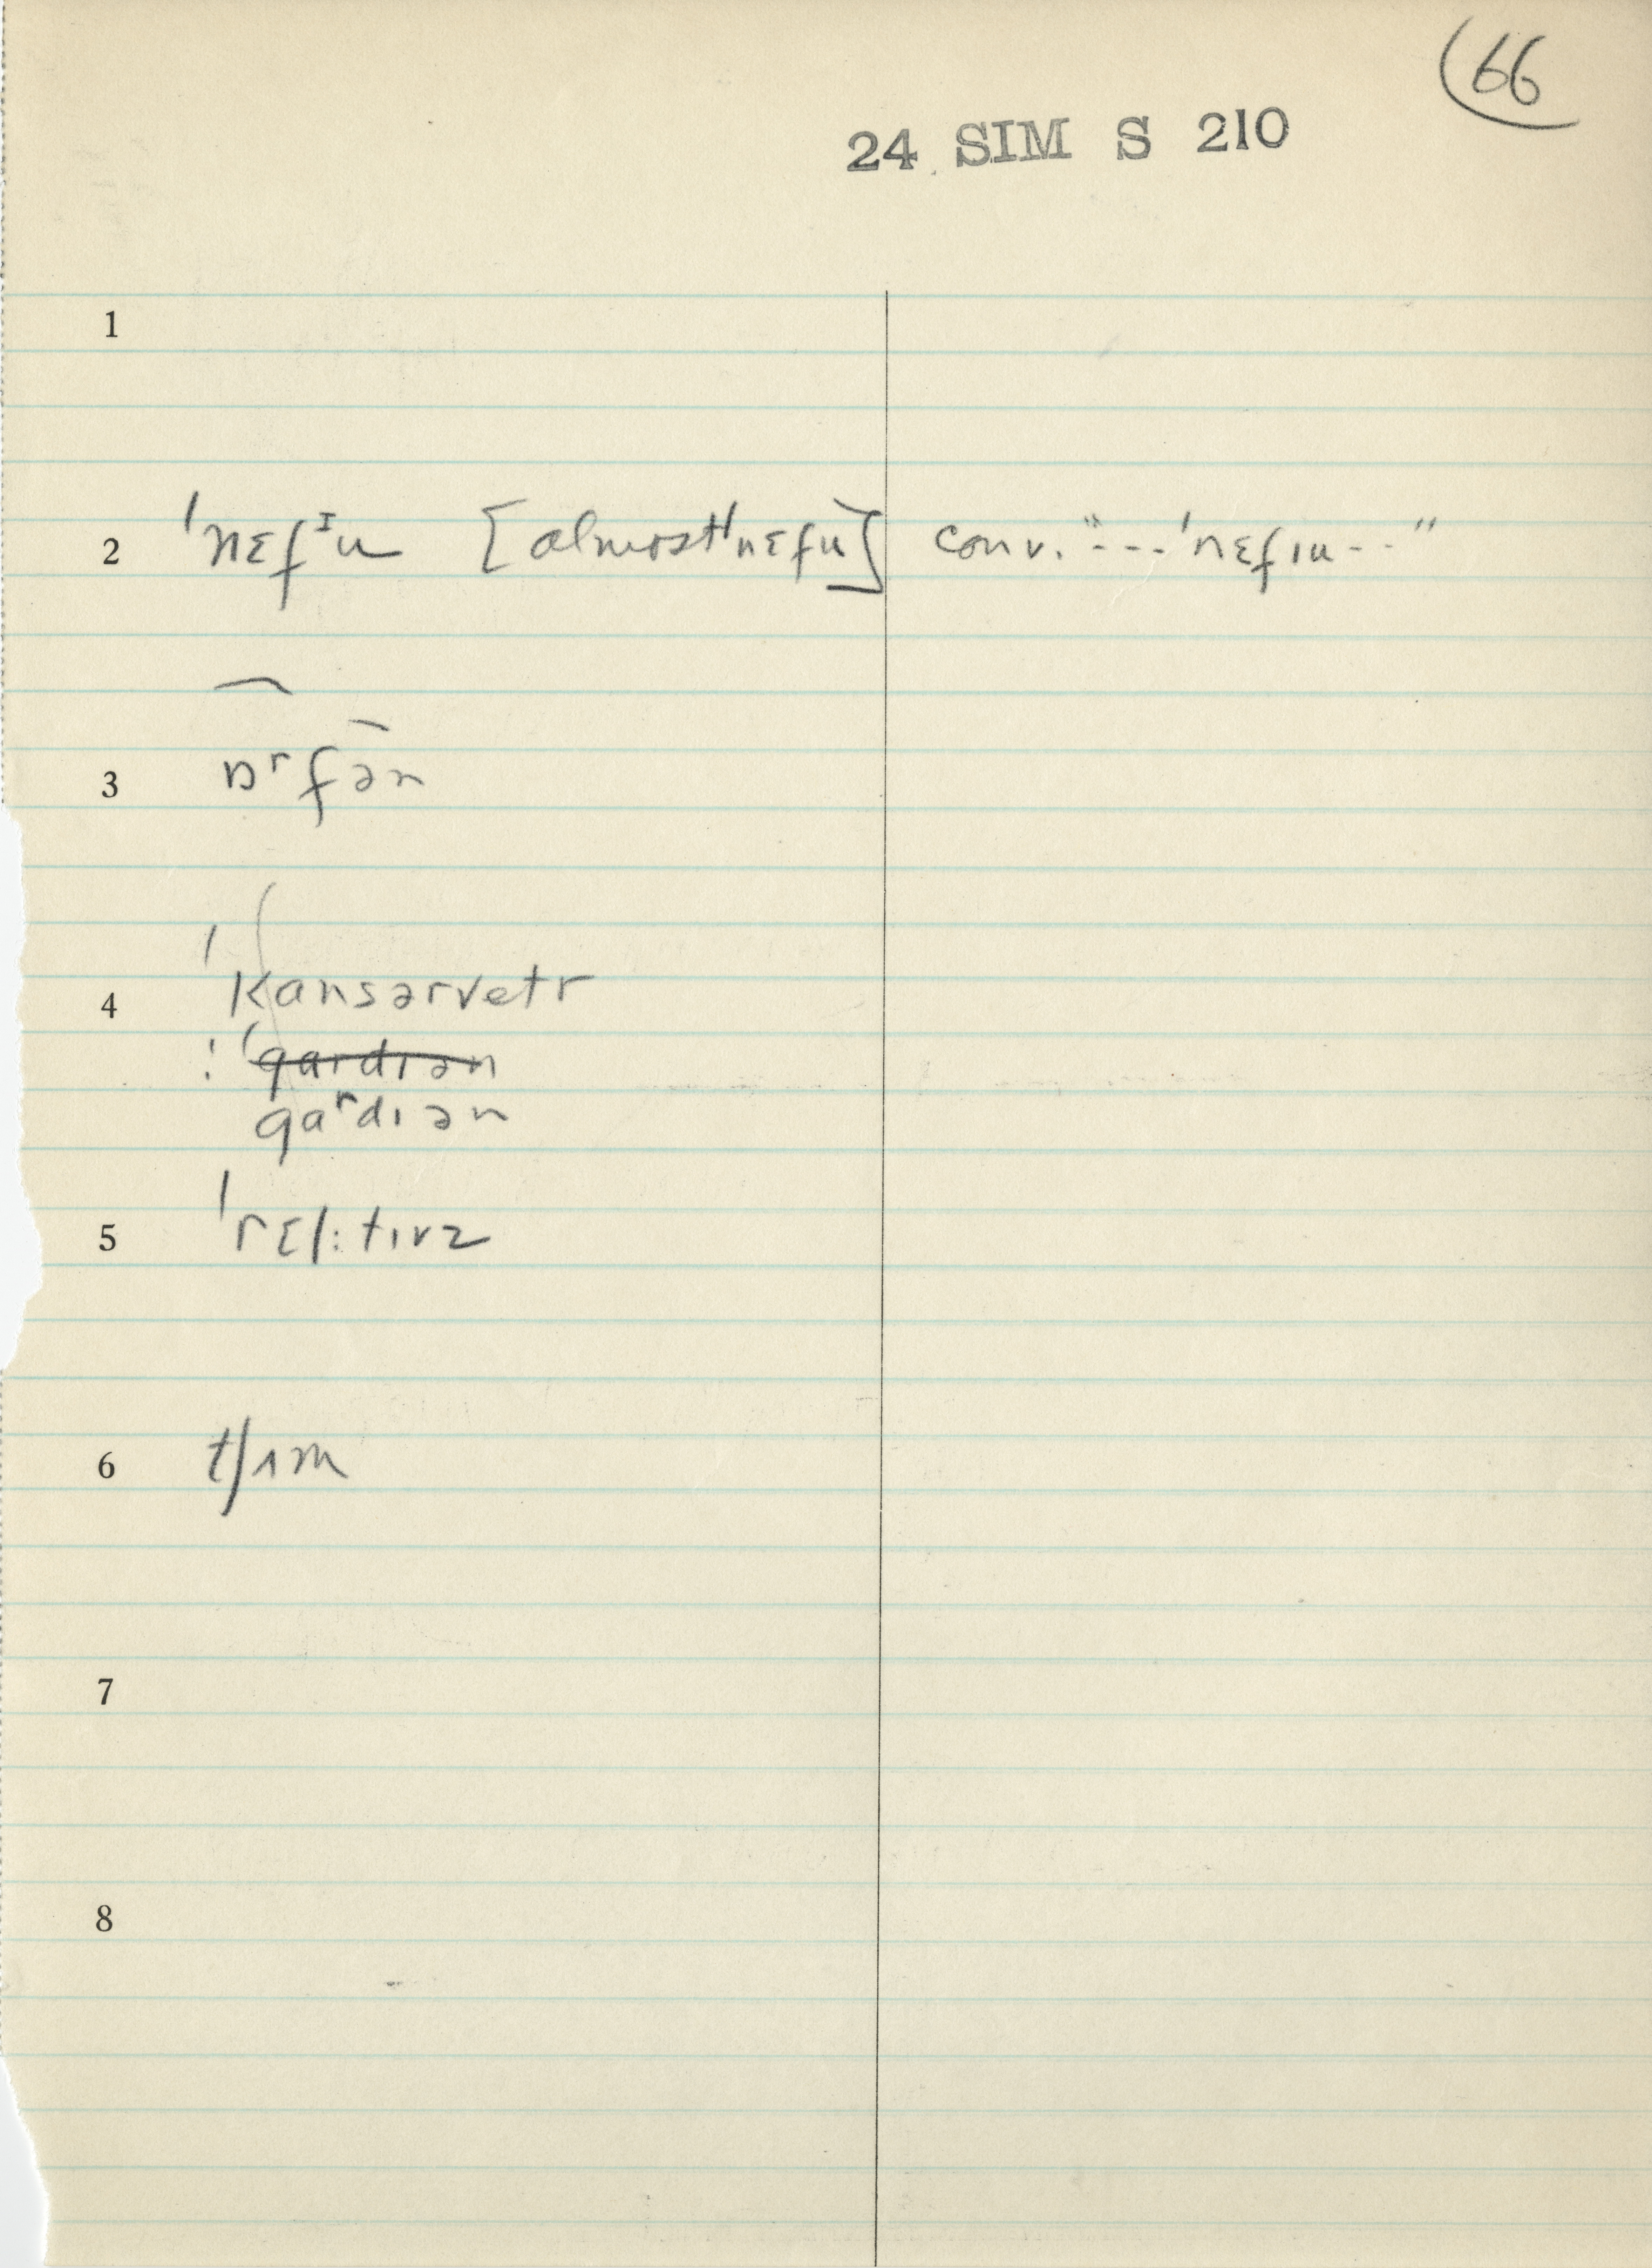 66
24 SIM S 210
1
2 ˈnɛfᶦu [almost ˈnɛfu] conv. "---ˈnɛfɪu--"
3 ɒʳfən
4 ˈkansərvetr
! ˈgardɪən
gaʳdɪən
5 ˈrɛl:tɪvz
6 tʃʌm
7
8